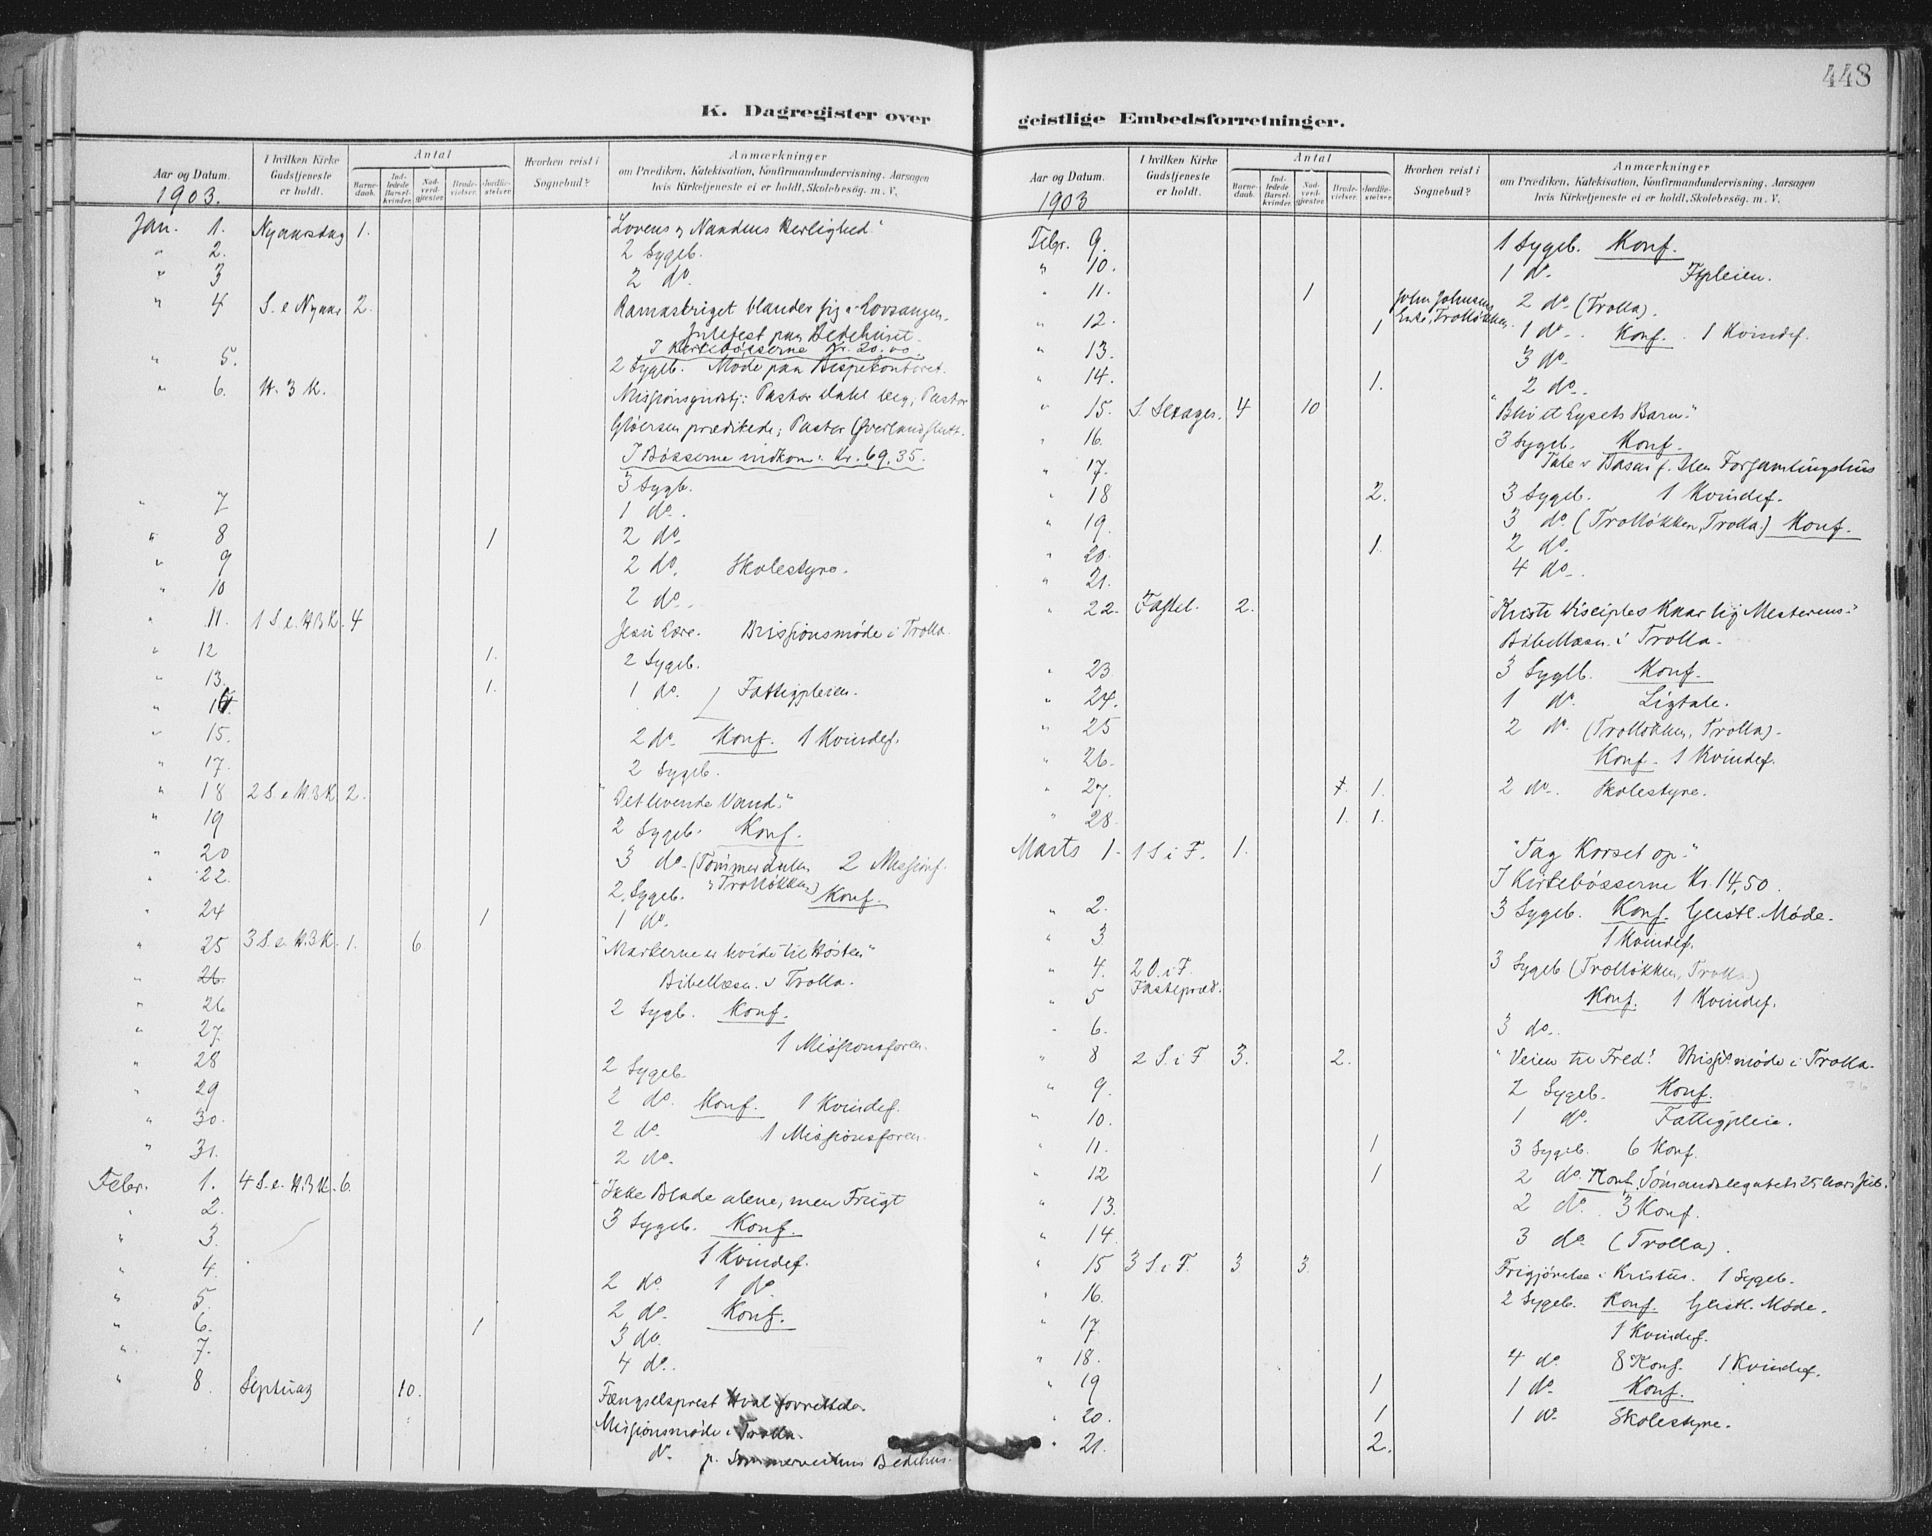 448
K. Dagregister over
Aar og Datum.
I hvilken Kirke Gudstjeneste er holdt.
Antal
Barnedaab.
Indledede Barselkvinder.
Nadverdgjæster.
Brudevielser.
Jordfæstelser.
Hvorhen reist i Sognebud?
Anmærkninger
om Prædiken, Katekisation, Konfirmandundervisning, Aarsagen
hvis Kirketjeneste ei er holdt, Skolebesøg m. V.
1903.
Jan. 1. Nyaarsdag 1. "Lovens og Naadens Herlighed"
" 2. 2 Sygeb.
" 3 2 do.
" 4 S. e Nyaar 2. Ramaskriget blander sig i Lovsangen.
Julefest paa Bedehuset.
I Kirkebøsserne Kr. 20.00.
" 5. 2 Sygeb. Møde paa Bispekontoret.
" 6. H. 3 K. Missionsgudstj: Pastor Dahl beg; Pastor
Gløersen prædikede; Pastor Øverland slutt.
I Bøsserne indkom: Kr. 69.35.
3 Sygb.
" 7 1 do.
" 8 1 2 do.
" 9 2 do. Skolestyre.
" 10 2 do.
" 11. 1 S. e. H.3K. 4 Jesu Lære. Missionsmøde i Trolla.
" 12 1. 2 Sygeb.
" 13. 1. 1 do. Fattigpleien.
" 14.
" 15. 2 do. Konf. 1 Kvindef.
" 17. 2 Sygeb.
" 18 2 S. e H.3K. 2. "Det levende Vand."
" 19 2 Sygeb. Konf.
" 20 3 do. (Tømmerdalen 2 Missionf.
og Trolløkken)
" 22. 2 Sygeb. Konf.
" 24 1 1 do.
" 25 3 S. e. H.3K. 1. 6. "Markerne er hvide til Høsten"
" 26. Bibellæsn. i Trolla.
" 26 2 Sygb. Konf.
" 27. 1 Missionsforen.
" 28 2 Sygeb.
" 29 2 do. Konf. 1 Kvindef.
" 30. 2 do. 1 Missionsforen.
" 31. 2 do.
Febr. 1. 4 S. e. H.3K. 6. "Ikke Blade alene, men Frugt
" 2. 3 Sygeb. Konf.
" 3. 1 Kvindef.
" 4. 2 do. 1 do.
" 5. 2 do. Konf.
" 6. 1 3 do.
" 7. 4 do.
" 8. Septuag 10. Fængselsprest Hval forrettede.
Missionsmøde i Trolla.
do. p. Bedehus.
geistlige Embedsforretninger.
Aar og Datum.
I hvilken Kirke Gudstjeneste er holdt.
Antal
Barnedaab.
Indledede Barselkvinder.
Nadverdgjæster.
Brudevielser.
Jordfæstelser.
Hvorhen reist i Sognebud?
Anmærkninger
om Prædiken, Katekisation, Konfirmandundervisning, Aarsagen
hvis Kirketjeneste ei er holdt, Skolebesøg m. V.
1903
Febr. 9. 1 Sygeb. Konf.
" 10. 1 do.
" 11. 1 John Johnsens Enke, Trolløkken. 2 do. (Trolla).
" 12. 1 1 do. Konf. 1 Kvindef.
" 13. 3 do.
" 14. 1. 2 do.
" 15. S Sexages. 4 10 "Bliv et Lysets Barn."
" 16. 3 Sygeb. Konf.
" 17. Tale v Basar f. Ilen Forsamlingshus
" 18 2. 3 Sygeb. 1 Kvindef.
" 19. 3 do. (Trolløkken, Trolla.) Konf.
" 20. 1. 2 do.
" 21. 4 do.
" 22. Fastel. 2. "Kristi Disciples Kaar lig Mesterens."
Bibellæsn. i Trolla.
" 23 3 Sygb. Konf.
" 24. 1 do. Ligtale.
" 25 2 do. (Trolløkken, Trolla).
" 26. Konf. 1 Kvindef.
" 27. 1. 2 do. Skolestyre.
" 28. 1. 1.
Marts 1. 1 S. i F. 1. "Tag Korset op."
I Kirkebøsserne Kr. 14,50.
" 2. 3 Sygeb. Konf. Geistl. Møde.
" 3 1 Kvindef.
" 4. 2 O. i F. 3 Sygeb (Trolløkken, Trolla)
" 5 Fastepræd. Konf. 1 Kvindef.
" 6. 3 do.
" 8 2 S. i F 3. 2. "Veien til Fred! Miss. møde i Trolla.
" 9. 2 Sygeb. Konf.
" 10. 1 do. Fattigpleie.
" 11. 1 3 Sygeb. 6 Konf.
" 12 1 2 do. Konf. Sømandslegatets 25 Aars Jub.
" 13. 2 do. 3 Konf.
" 14. 3 do. (Trolla).
" 15 3 S. i F. 3 3. Frigjørelse i Kristus. 1 Sygeb.
" 16. 2 Sygeb. Konf. Geistl. Møde.
" 17 1 Kvindef.
" 18. 4 do. 8 Konf. 1 Kvindef.
" 19 1 1 do. Konf.
" 20. 1 1 do. Skolestyre.
" 21. 2.